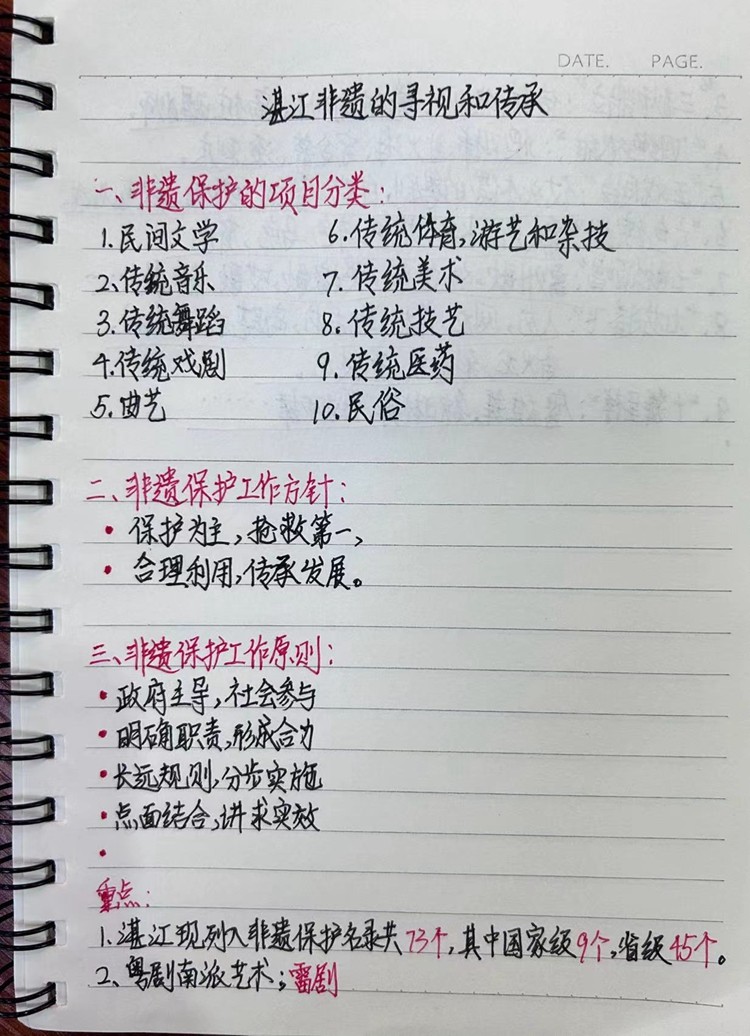 DATE. PAGE.
湛江非遗的寻视和传承
一、非遗保护的项目分类：
1.民间文学 6.传统体育,游艺和杂技
2.传统音乐 7.传统美术
3.传统舞蹈 8.传统技艺
4.传统戏剧 9.传统医药
5.曲艺 10.民俗
二、非遗保护工作方针：
• 保护为主,抢救第一,
• 合理利用,传承发展。
三、非遗保护工作原则：
• 政府主导,社会参与
• 明确职责,形成合力
• 长远规则,分步实施
• 点面结合,讲求实效
•
重点：
1.湛江现列入非遗保护名录共73个,其中国家级9个,省级45个。
2、粤剧南派艺术；雷剧